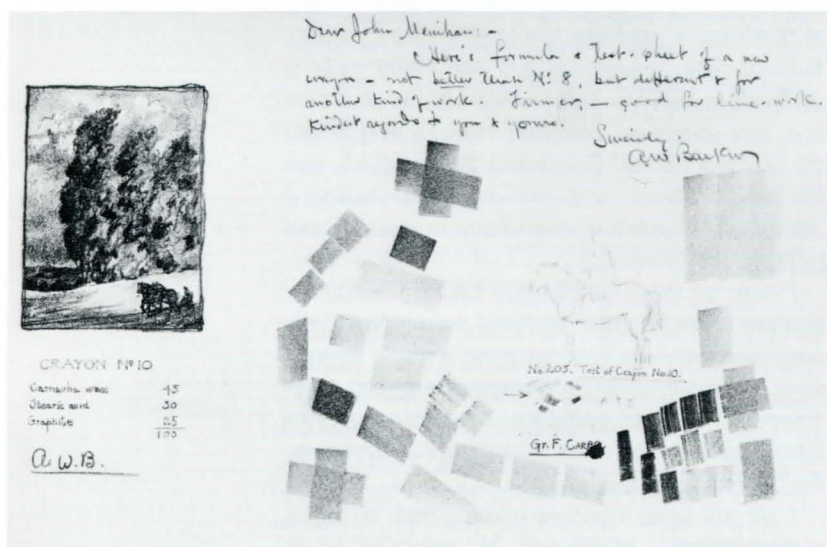 Dear John Menihan: -
Here's formula & test-sheet of a new
crayon - not better than No. 8, but different & for
another kind of work. Firmer, - good for line-work.
Kindest regards to you & yours.
Sincerely
AW Barker
CRAYON No 10
Carnauba wax 45
Stearic acid 30
Graphite 25
100
A.W.B.
No. 205. Test of Crayon No. 10.
Gr. F.